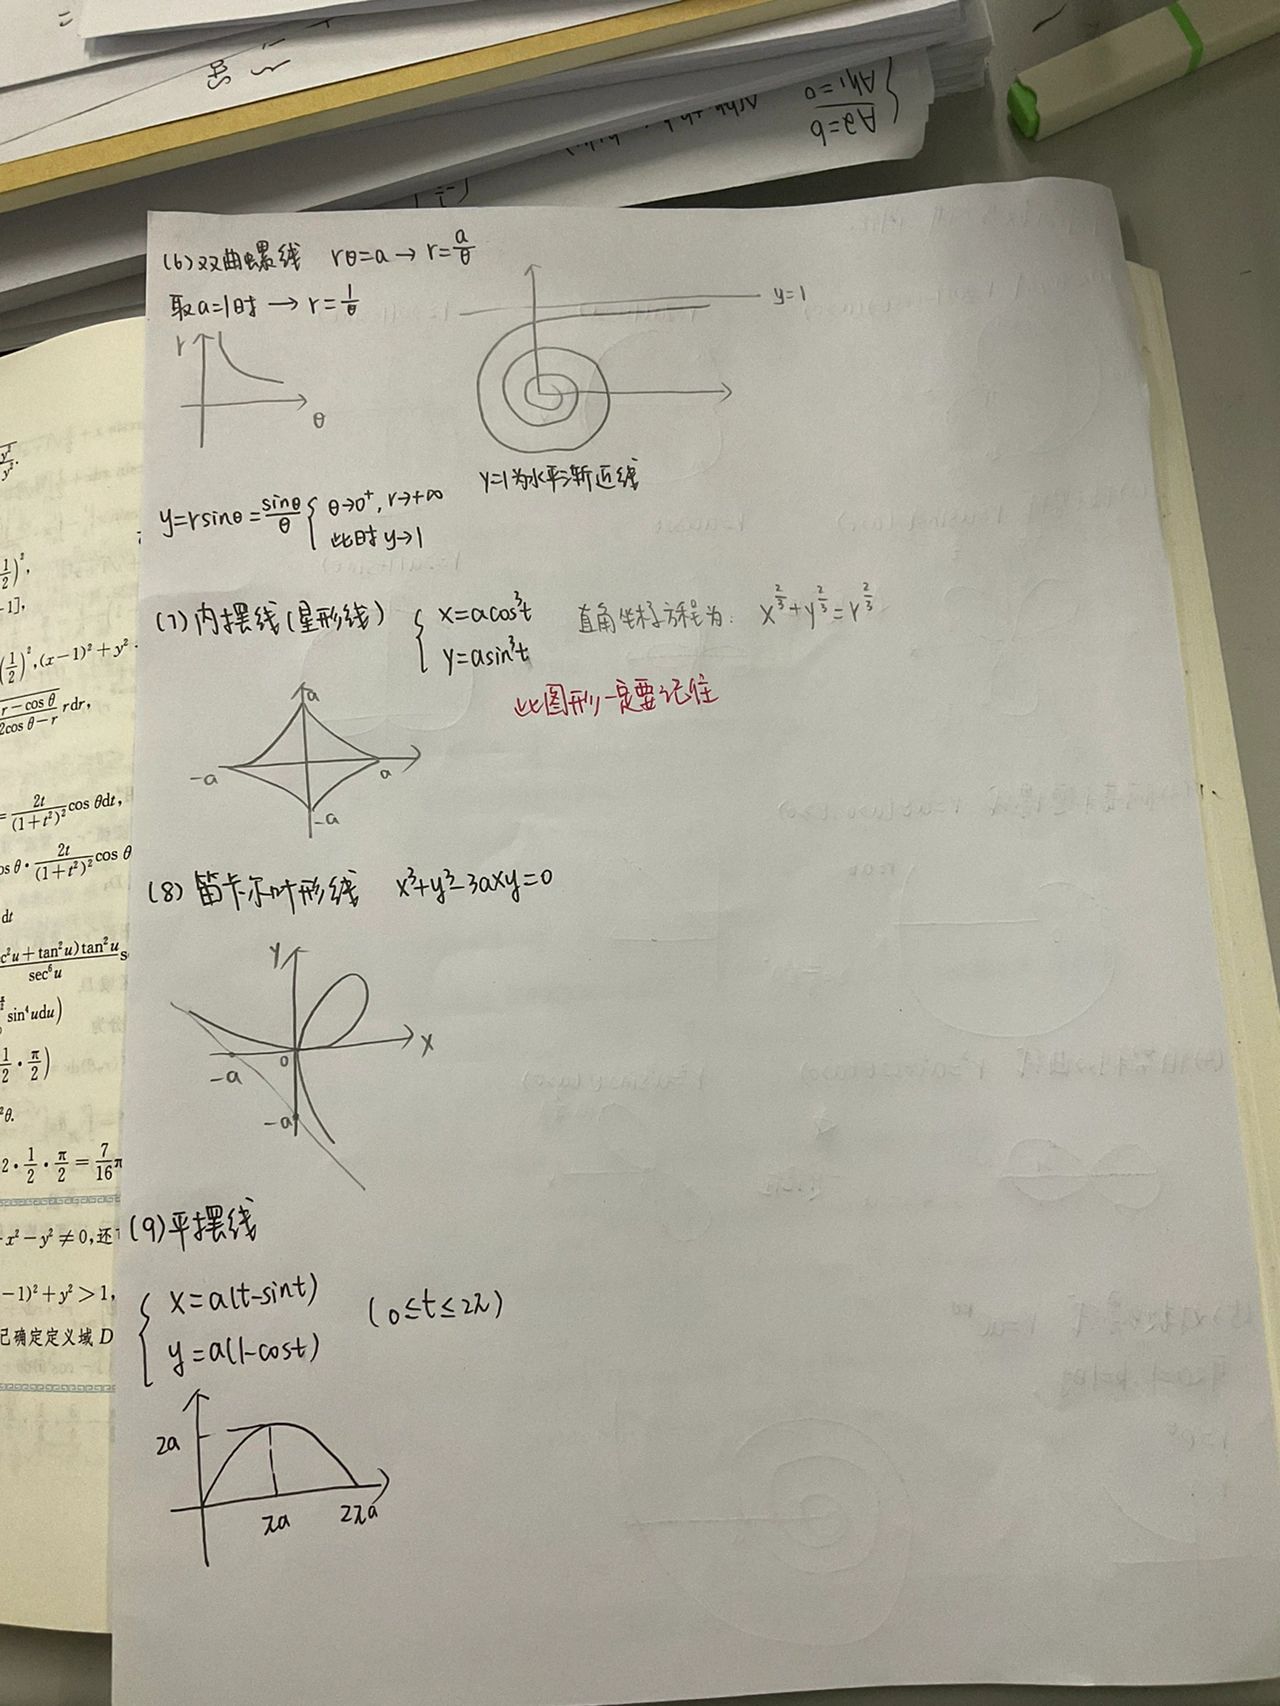 Aa=b
Ah₁=0
(6)双曲螺线 rθ=a→r=a/θ
取a=1时→r=1/θ
y=1
r
θ
y=1为水平渐近线
y=rsinθ=sinθ/θ { θ→0⁺,r→+∞
此时y→1
(7)内摆线(星形线) { x=acos³t
y=asin³t
直角坐标方程为: x^(2/3)+y^(2/3)=r^(2/3)
此图形一定要记住
a
-a
a
-a
(8)笛卡尔叶形线 x³+y³-3axy=0
y
x
0
-a
-a
(9)平摆线
{ x=a(t-sint)
y=a(1-cost)
(0≤t≤2π)
2a
πa
2πa
(1/2)²,
-1],
(1/2)²,(x-1)²+y²
r-cosθ
2cosθ-r rdr,
=2t/(1+t²)² cos θdt,
os θ·2t/(1+t²)² cos θ
dt
c²u+tan²u)tan²u/sec⁶u
sin⁴udu)
1/2·π/2)
²θ.
2·1/2·π/2=7/16π
x²-y²≠0,还
-1)²+y²>1,
已确定定义域 D